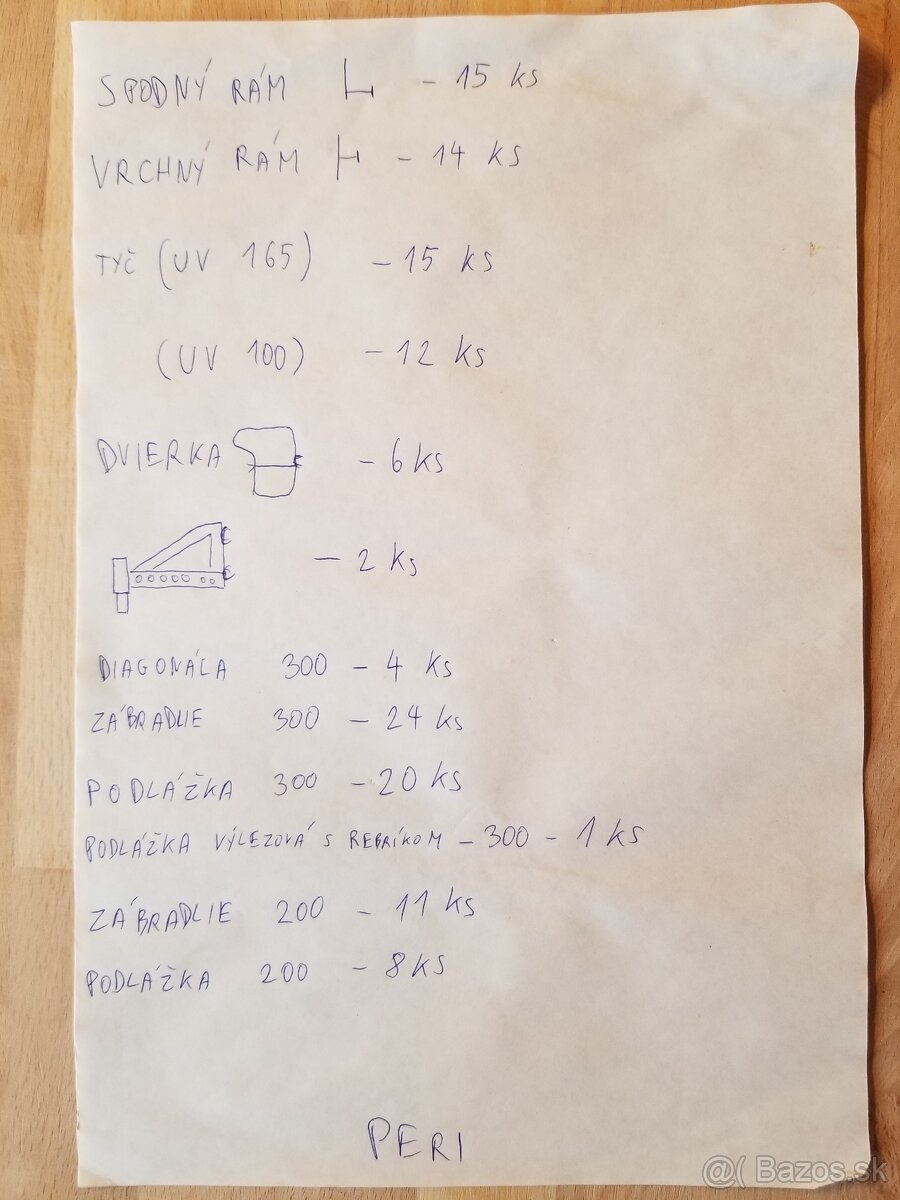 SPODNÝ RÁM - 15 ks
VRCHNÝ RÁM - 14 ks
TYČ (UV 165) - 15 ks
(UV 100) - 12 ks
DVIERKA - 6 ks
- 2 ks
DIAGONÁLA 300 - 4 ks
ZÁBRADLIE 300 - 24 ks
PODLÁŽKA 300 - 20 ks
PODLÁŽKA VÝLEZOVÁ S REBRÍKOM - 300 - 1 ks
ZÁBRADLIE 200 - 11 ks
PODLÁŽKA 200 - 8 ks
PERI
@( Bazos.sk